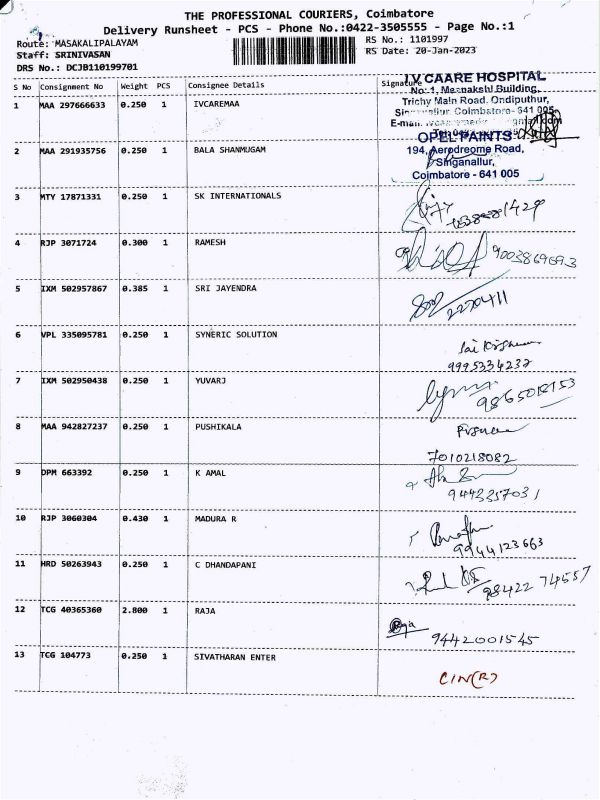 THE PROFESSIONAL COURIERS, Coimbatore
Delivery Runsheet - PCS - Phone No.:0422-3505555 - Page No.:1
Route: MASAKALIPALAYAM
Staff: SRINIVASAN
DRS No.: DCJB110199701
RS No.: 1101997
RS Date: 20-Jan-2023
S No Consignment No Weight PCS Consignee Details Signature
I.V.CAARE HOSPITAL
No: 1, Meenakshi Building,
Trichy Main Road, Ondiputhur,
Coimbatore- 641 005
1 MAA 297666633 0.250 1 IVCAREMAA
OPEL PAINTS
194, Aerodreome Road,
Singanallur,
Coimbatore - 641 005
2 MAA 291935756 0.250 1 BALA SHANMUGAM
3 MTY 17871331 0.250 1 SK INTERNATIONALS
4 RJP 3071724 0.300 1 RAMESH
9003869693
5 IXM 502957867 0.385 1 SRI JAYENDRA
2270411
6 VPL 335095781 0.250 1 SYNERIC SOLUTION
9995334232
7 IXM 502950438 0.250 1 YUVARJ
8 MAA 942827237 0.250 1 PUSHIKALA
7010218082
9 DPM 663392 0.250 1 K AMAL
9443357031
10 RJP 3060304 0.430 1 MADURA R
9944123663
11 HRD 50263943 0.250 1 C DHANDAPANI
98422 74557
12 TCG 40365360 2.800 1 RAJA
Raja
9442001545
13 TCG 104773 0.250 1 SIVATHARAN ENTER
CIN(R)